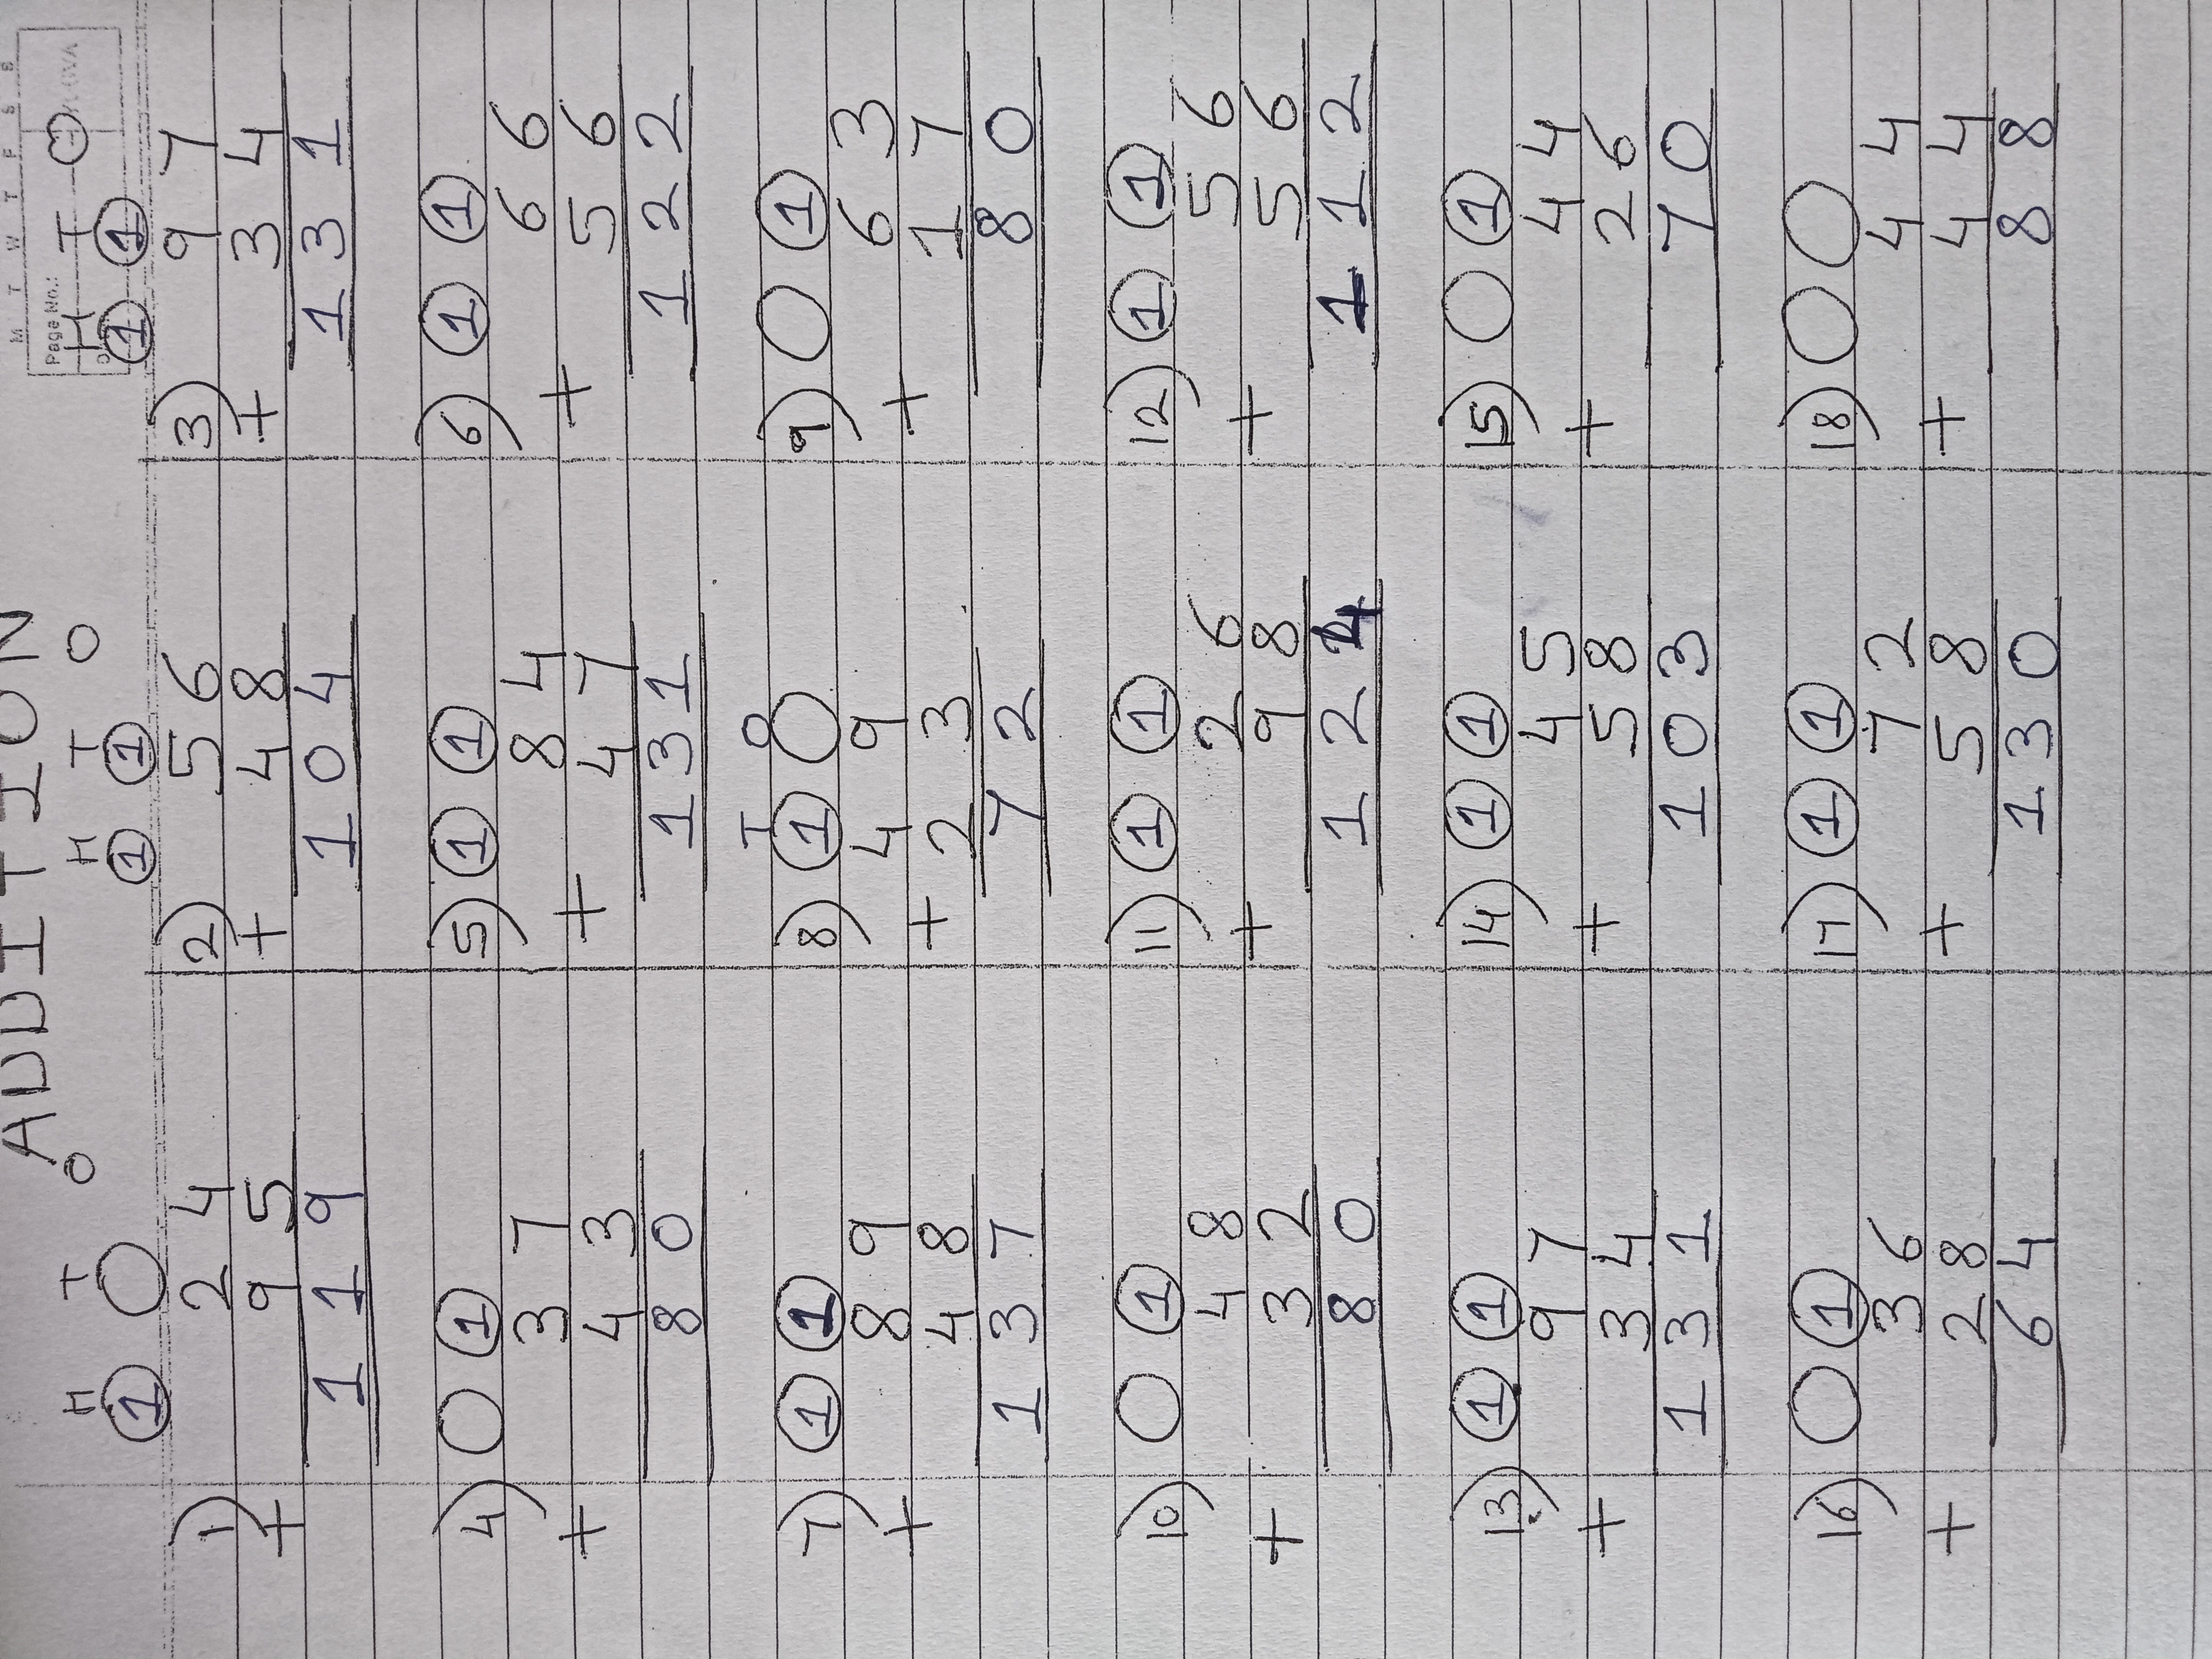 M T W T F S S
Page No.:
ADDITION
H T O H T O H T O
1) ① ○ 2) ① ① 3) ① ①
2 4 5 6 9 7
+ 9 5 + 4 8 + 3 4
1 1 9 1 0 4 1 3 1
4) ○ ① 5) ① ① 6) ① ①
3 7 8 4 6 6
+ 4 3 + 4 7 + 5 6
8 0 1 3 1 1 2 2
T O
7) ① ① 8) ① ○ 9) ○ ①
8 9 4 9 6 3
+ 4 8 + 2 3 + 1 7
1 3 7 7 2 8 0
10) ○ ① 11) ① ① 12) ① ①
4 8 2 6 5 6
+ 3 2 + 9 8 + 5 6
8 0 1 2 4 1 1 2
13) ① ① 14) ① ① 15) ○ ①
9 7 4 5 4 4
+ 3 4 + 5 8 + 2 6
1 3 1 1 0 3 7 0
16) ○ ① 17) ① ① 18) ○ ○
3 6 7 2 4 4
+ 2 8 + 5 8 + 4 4
6 4 1 3 0 8 8